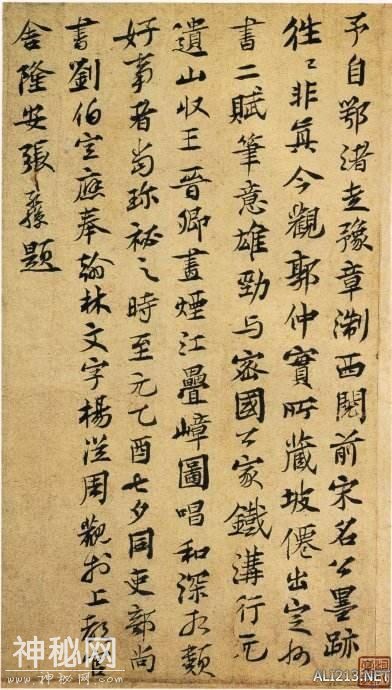 予自鄂渚走豫章淛西閱前宋名公墨跡
往〻非真今觀郭仲實所藏坡僊出定州
書二賦筆意雄勁与密國公家鐵溝行元
遺山收王晉卿畫煙江疊嶂圖唱和深相類
好事者當珍祕之時至元乙酉七夕同吏部尚
書劉伯宣應奉翰林文字楊從周觀於上都寓
舍隆安張孔孫題
神秘网
ALI213.NET